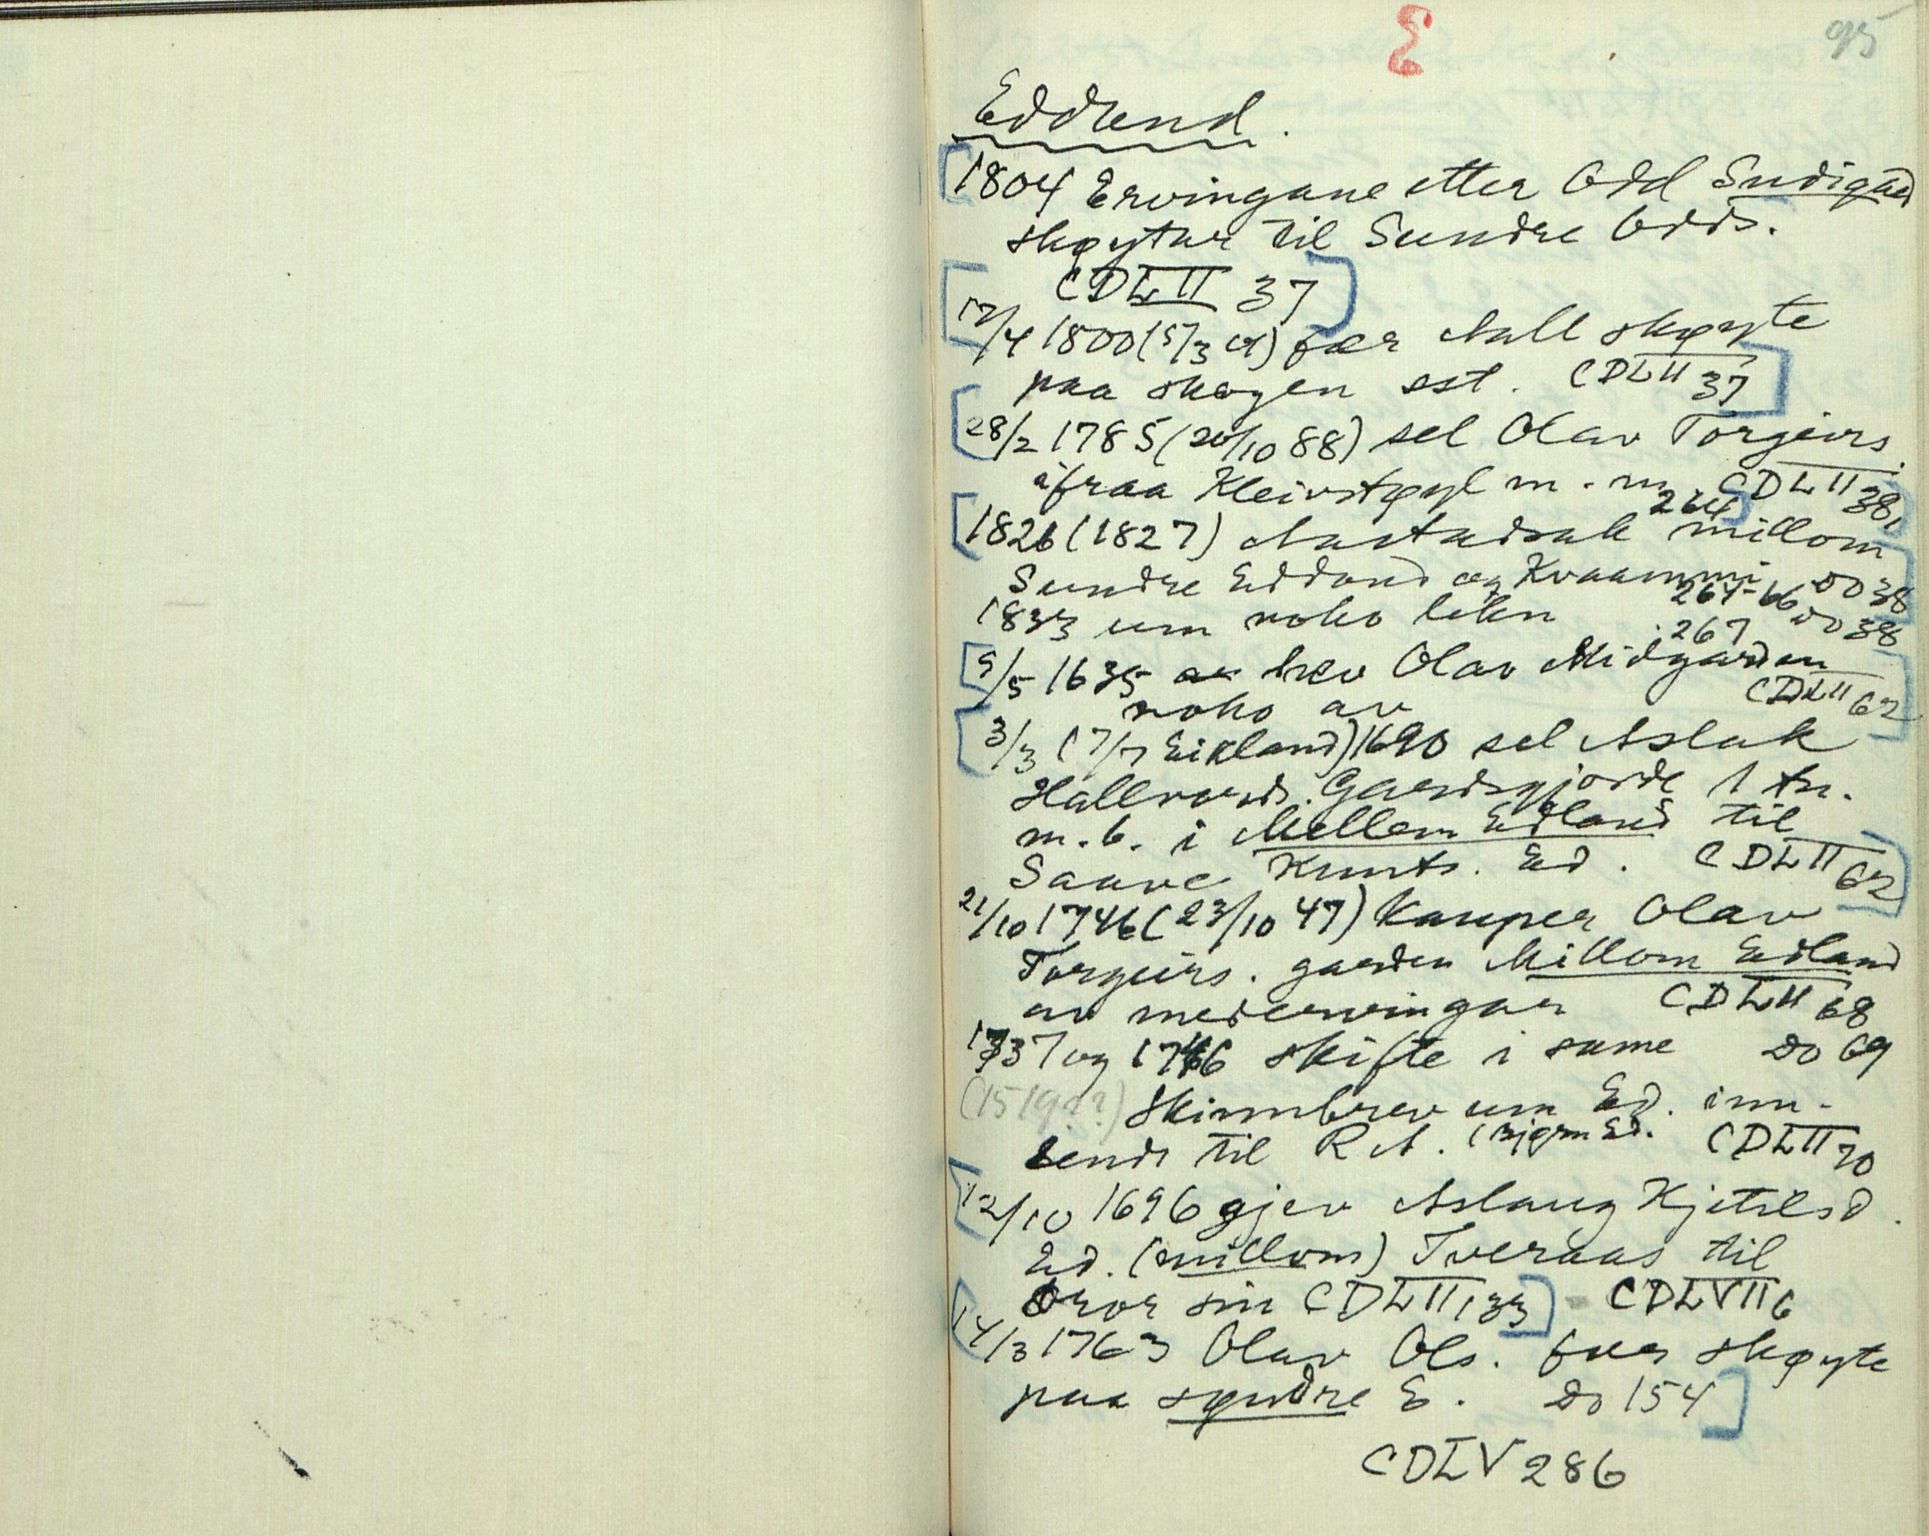 E
95
Eddlend.
1804 Ervingane etter Odd Sudigard
skøytar til Sundre Odds.
CDLII 37
12/4 1800 (5/3 01) fær Aall skøyte
paa skogen sst. CDLII 37
28/2 1785 (20/10 88) sel Olav Torgeirs.
ifraa Kleivstøyl m. m. CDLII 38,
264
1826 (1827) millom
Sundre Eddland og Kvaammi do 38
264-66
1833 um noko do 38
267
9/5 1635 hev Olav Midgarden
noko av CDLII 62
3/3 (7/7 Eikland) 1690 sel Aslak
Hallvords. Gardsgjorde 1 tn.
m. b. i Mellem Edland til
Saave Knuts. Ed. CDLII 62
21/10 1746 (23/10 47) kauper Olav
Torgeirs. garden Millom Edland
av medervingar CDLII 68
1737 og 1746 skifte i same do 69
(1519??) Skinnbrev um Ed. inn-
sendt til R.A. (Bjørn Ed. CDLII 70
12/10 1696 gjev Aslaug Kjetilsd.
Ed. (millom) Tveraas til
bror sin CDLII, 133 CDLVII 6
14/3 1763 Olav Ols. fær skøyte
paa syndre E. do 154
CDLV 286